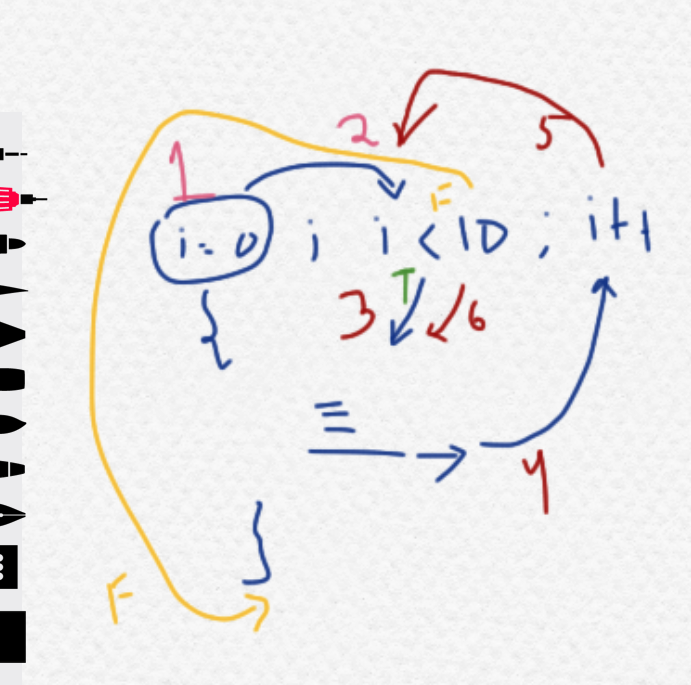 2
5
1
F
i=0 ; i<10 ; i++
T
3
6
{
4
}
F